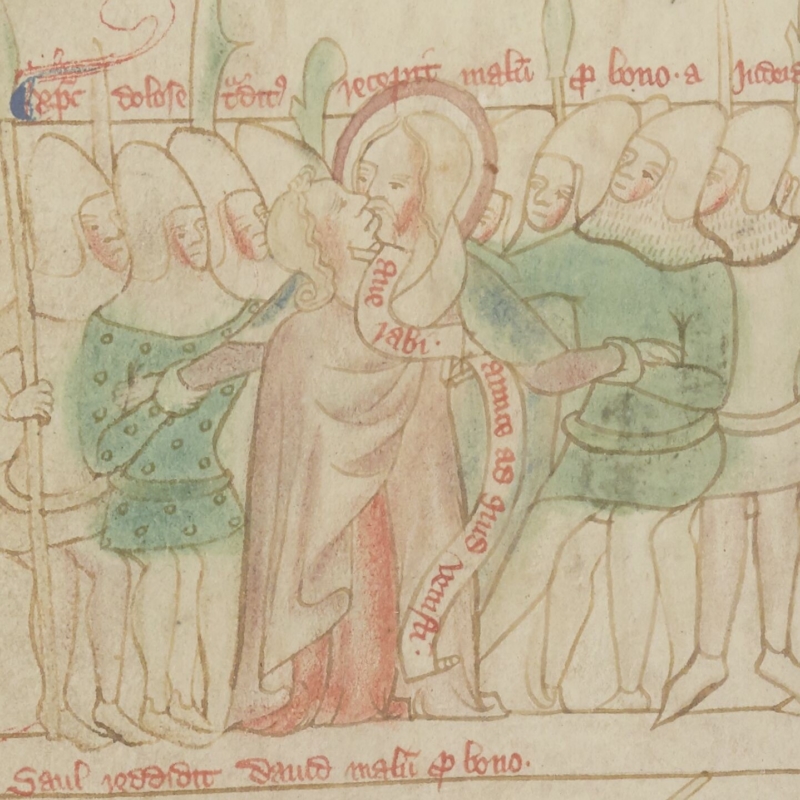 xp̄c dolose t͛dit⁹ recepit malū ꝓ bono · a Judeis
Aue
rabi ·
amice ad quid venisti ·
Saul reddidit Dauid malū ꝓ bono ·